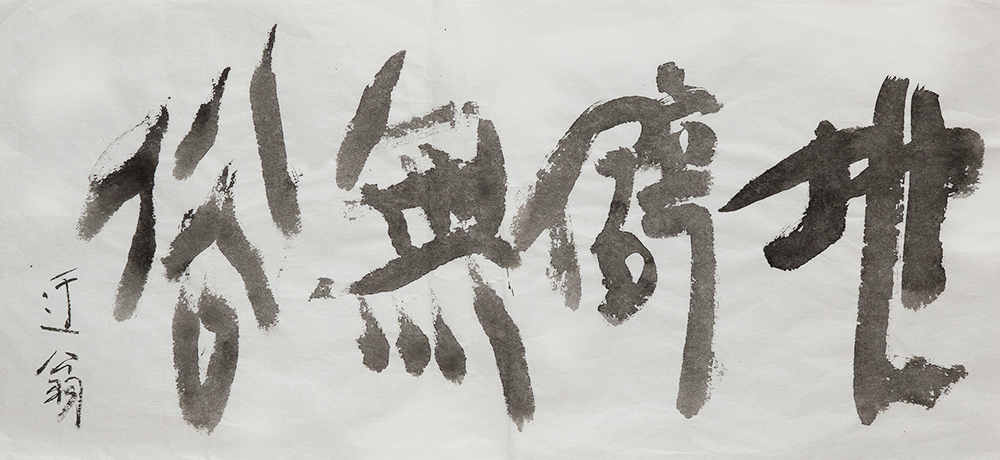 地僻無俗
迂翁